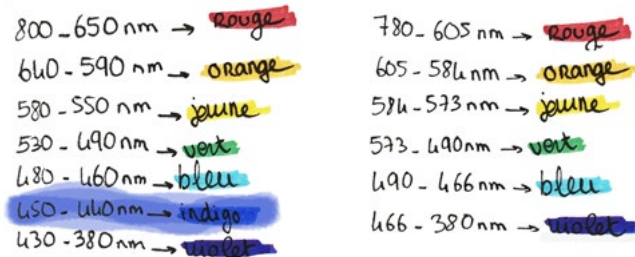 800 - 650 nm → Rouge
640 - 590 nm → ORANGE
580 - 550 nm → jaune
530 - 490 nm → vert
480 - 460 nm → bleu
450 - 440 nm → indigo
430 - 380 nm → violet
780 - 605 nm → Rouge
605 - 584 nm → ORANGE
584 - 573 nm → jaune
573 - 490 nm → vert
490 - 466 nm → bleu
466 - 380 nm → violet